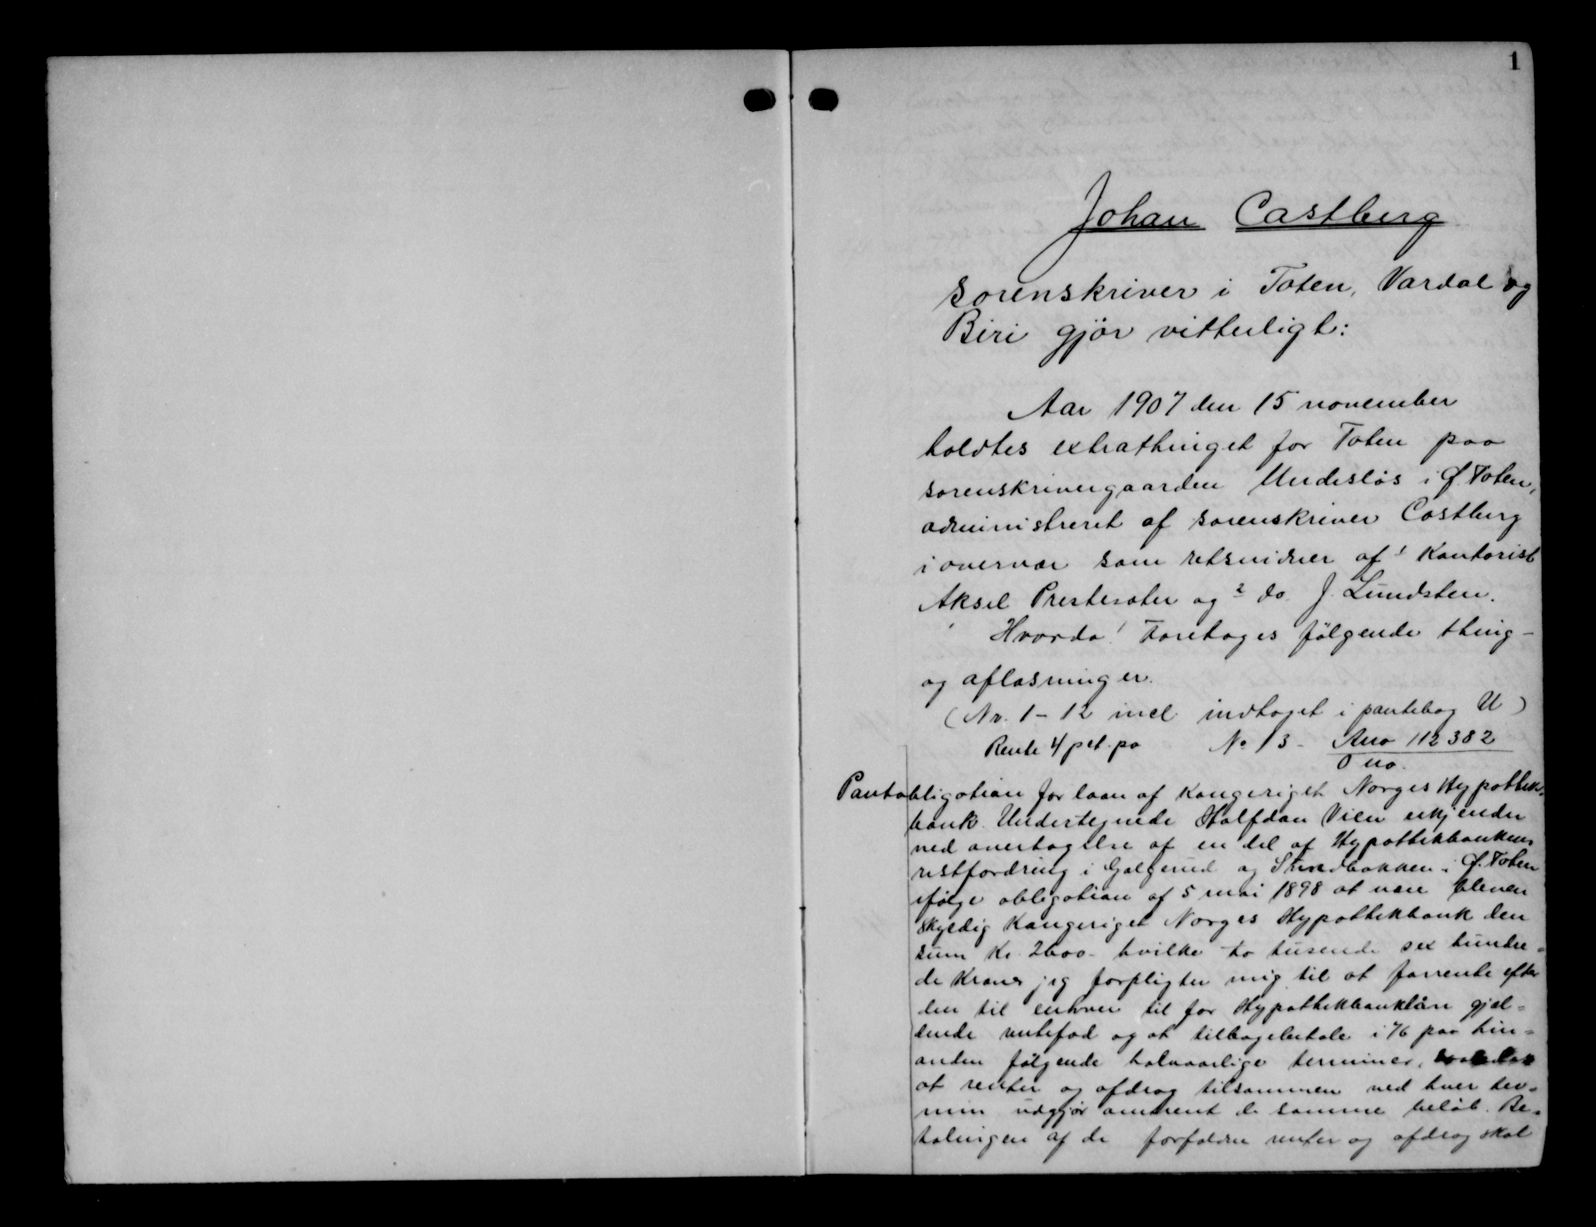 1
Johan Castberg
sorenskriver i Toten, Vardal og
Biri gjör vitterligt:
Aar 1907 den 15 november
holdtes extrathinget for Toten paa
sorenskrivergaarden i Ø. Toten,
administreret af sorenskriver Castberg
i overvær som retsvidner af 1 Kontorist
Aksel Prestesæter og 2 do J. Lundsten.
Hvorda! Foretoges følgende thing-
og aflæsninger.
(Nr. 1-12 incl indtaget i pantebog U)
Rente 4 pct. pa No 13 - 112382
Pantobligation for laan af Kongeriget Norges Hypothek-
bank. Undertegnede Halfdan Vilen erkjender
ved overtagelse af en del af Hypothekbankens
restfordring i Galgerud og i Ø. Toten
ifølge obligation af 5 mai 1898 at være bleven
skyldig Kongeriget Norges Hypothekbank den
sum Kr. 2600- hvilke to tusende sex hundre-
de Kroner jeg forpligter mig til at forrente efter
den til enhver tid for Hypothekbanklån gjæl-
dende rentefod og at tilbagebetale i 76 paa hin-
anden følgende halvaarlige terminer,
at renter og afdrag tilsammen ved hver ter-
min udgjør omtrent de samme beløb. Be-
talingen af de forfaldne renter og afdrag skal